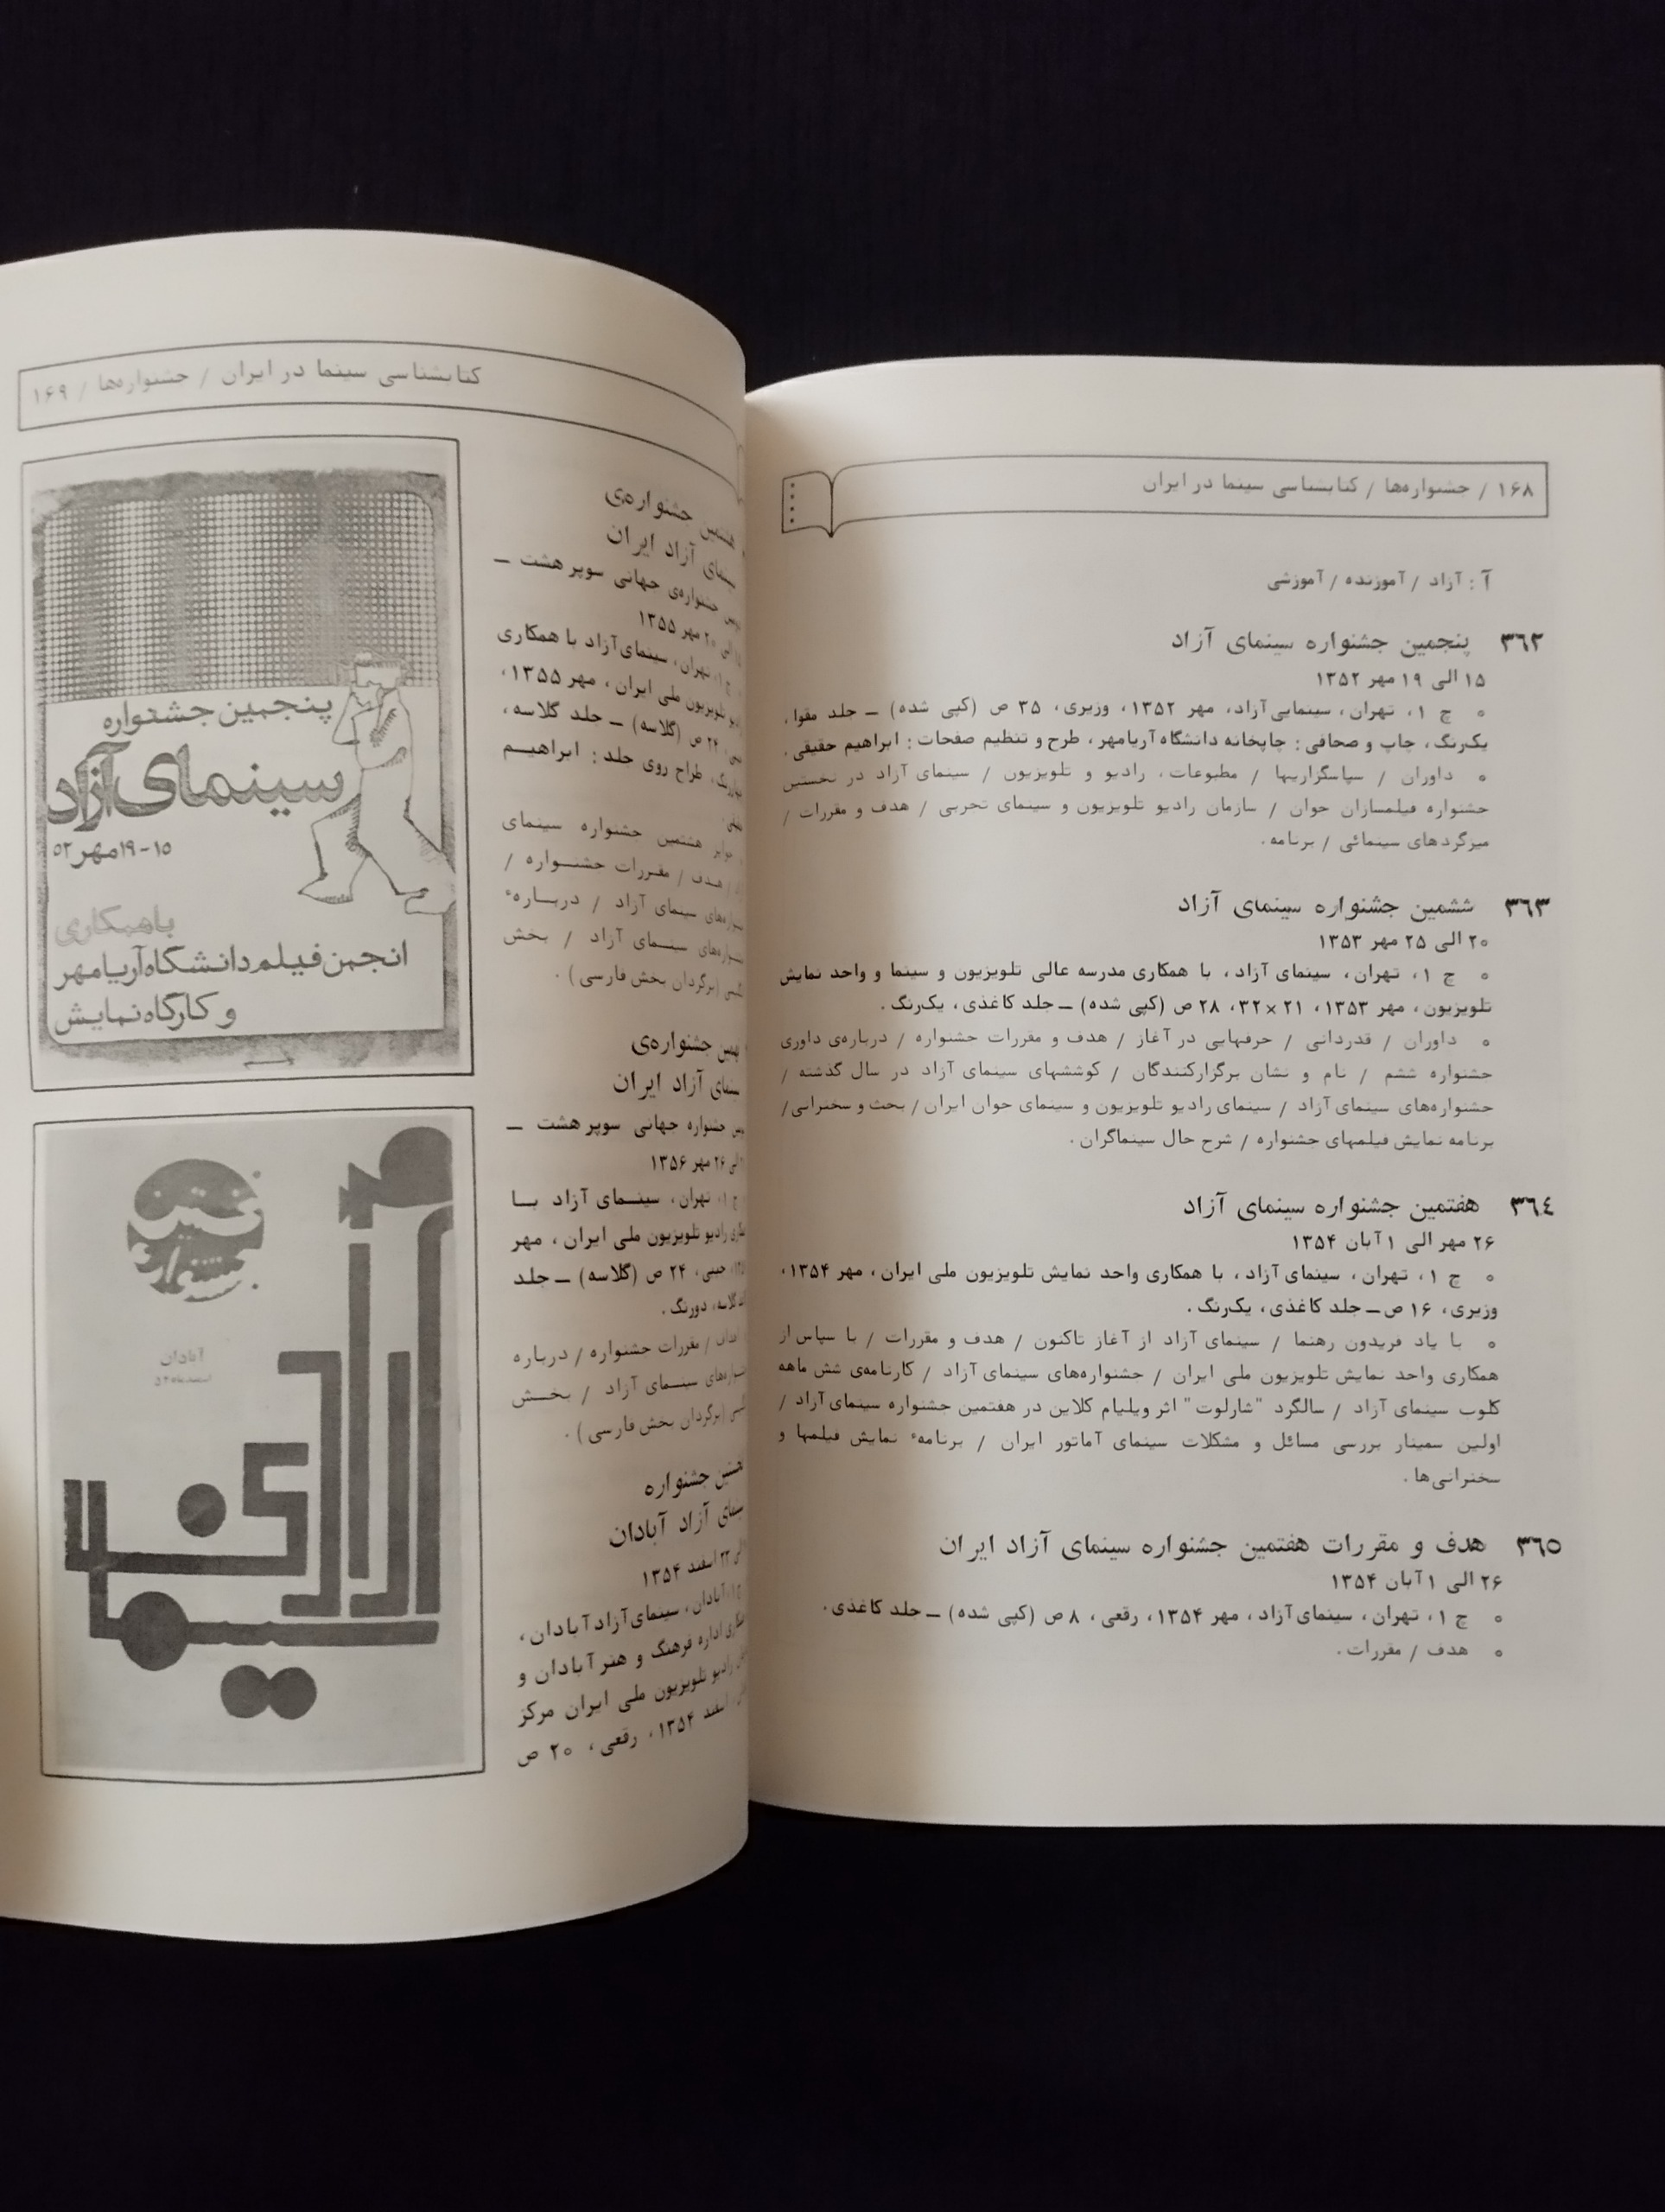 ۱۶۸ / جشنواره‌ها / کتابشناسی سینما در ایران
آ : آزاد / آموزنده / آموزشی
۳۶۲ پنجمین جشنواره سینمای آزاد
۱۵ الی ۱۹ مهر ۱۳۵۲
○ چ ۱، تهران، سینمایی‌آزاد، مهر ۱۳۵۲، وزیری، ۳۵ ص (کپی شده) ــ جلد مقوا،
یک‌رنگ، چاپ و صحافی: چاپخانه دانشگاه آریامهر، طرح و تنظیم صفحات: ابراهیم حقیقی.
○ داوران / سپاسگزاریها / مطبوعات، رادیو و تلویزیون / سینمای آزاد در نخستین
جشنواره فیلمسازان جوان / سازمان رادیو تلویزیون و سینمای تجربی / هدف و مقررات /
میزگردهای سینمائی / برنامه.
۳۶۳ ششمین جشنواره سینمای آزاد
۲۰ الی ۲۵ مهر ۱۳۵۳
○ چ ۱، تهران، سینمای آزاد، با همکاری مدرسه عالی تلویزیون و سینما و واحد نمایش
تلویزیون، مهر ۱۳۵۳، ۲۱ × ۳۲، ۲۸ ص (کپی شده) ــ جلد کاغذی، یک‌رنگ.
○ داوران / قدردانی / حرفهایی در آغاز / هدف و مقررات جشنواره / درباره‌ی داوری
جشنواره ششم / نام و نشان برگزارکنندگان / کوششهای سینمای آزاد در سال گذشته /
جشنواره‌های سینمای آزاد / سینمای رادیو تلویزیون و سینمای جوان ایران / بحث و سخنرانی /
برنامه نمایش فیلمهای جشنواره / شرح حال سینماگران.
۳۶۴ هفتمین جشنواره سینمای آزاد
۲۶ مهر الی ۱ آبان ۱۳۵۴
○ چ ۱، تهران، سینمای آزاد، با همکاری واحد نمایش تلویزیون ملی ایران، مهر ۱۳۵۴،
وزیری، ۱۶ ص ــ جلد کاغذی، یک‌رنگ.
○ با یاد فریدون رهنما / سینمای آزاد از آغاز تاکنون / هدف و مقررات / با سپاس از
همکاری واحد نمایش تلویزیون ملی ایران / جشنواره‌های سینمای آزاد / کارنامه‌ی شش ماهه
کلوب سینمای آزاد / سالگرد "شارلوت" اثر ویلیام کلاین در هفتمین جشنواره سینمای آزاد /
اولین سمینار بررسی مسائل و مشکلات سینمای آماتور ایران / برنامهٔ نمایش فیلمها و
سخنرانی‌ها.
۳۶۵ هدف و مقررات هفتمین جشنواره سینمای آزاد ایران
۲۶ الی ۱ آبان ۱۳۵۴
○ چ ۱، تهران، سینمای آزاد، مهر ۱۳۵۴، رقعی، ۸ ص (کپی شده) ــ جلد کاغذی.
○ هدف / مقررات.
کتابشناسی سینما در ایران / جشنواره‌ها / ۱۶۹
هشتمین جشنواره‌ی
سینمای آزاد ایران
جشنواره‌ی جهانی سوپر هشت ــ
الی ۲۰ مهر ۱۳۵۵
چ ۱، تهران، سینمای آزاد با همکاری
تلویزیون ملی ایران، مهر ۱۳۵۵،
۲۴ ص (گلاسه) ــ جلد گلاسه،
طراح روی جلد: ابراهیم
هشتمین جشنواره سینمای
/ هدف / مقررات جشنواره /
سینمای آزاد / دربارهٔ
سینمای آزاد / بخش
(برگردان بخش فارسی).
جشنواره‌ی
سینمای آزاد ایران
جشنواره جهانی سوپر هشت ــ
الی ۲۶ مهر ۱۳۵۶
چ ۱، تهران، سینمای آزاد با
رادیو تلویزیون ملی ایران، مهر
جیبی، ۲۴ ص (گلاسه) ــ جلد
گلاسه، دورنگ.
اهداف / مقررات جشنواره / درباره
سینمای آزاد / بخش
(برگردان بخش فارسی).
جشنواره
سینمای آزاد آبادان
۲۲ اسفند ۱۳۵۴
آبادان، سینمای آزاد آبادان،
اداره فرهنگ و هنر آبادان و
رادیو تلویزیون ملی ایران مرکز
اسفند ۱۳۵۴، رقعی، ۲۰ ص
پنجمین جشنواره
سینمای آزاد
۱۵-۱۹ مهر ۵۲
باهمکاری
انجمن فیلم دانشگاه آریامهر
و کارگاه نمایش
آبادان
آزاد
سینما